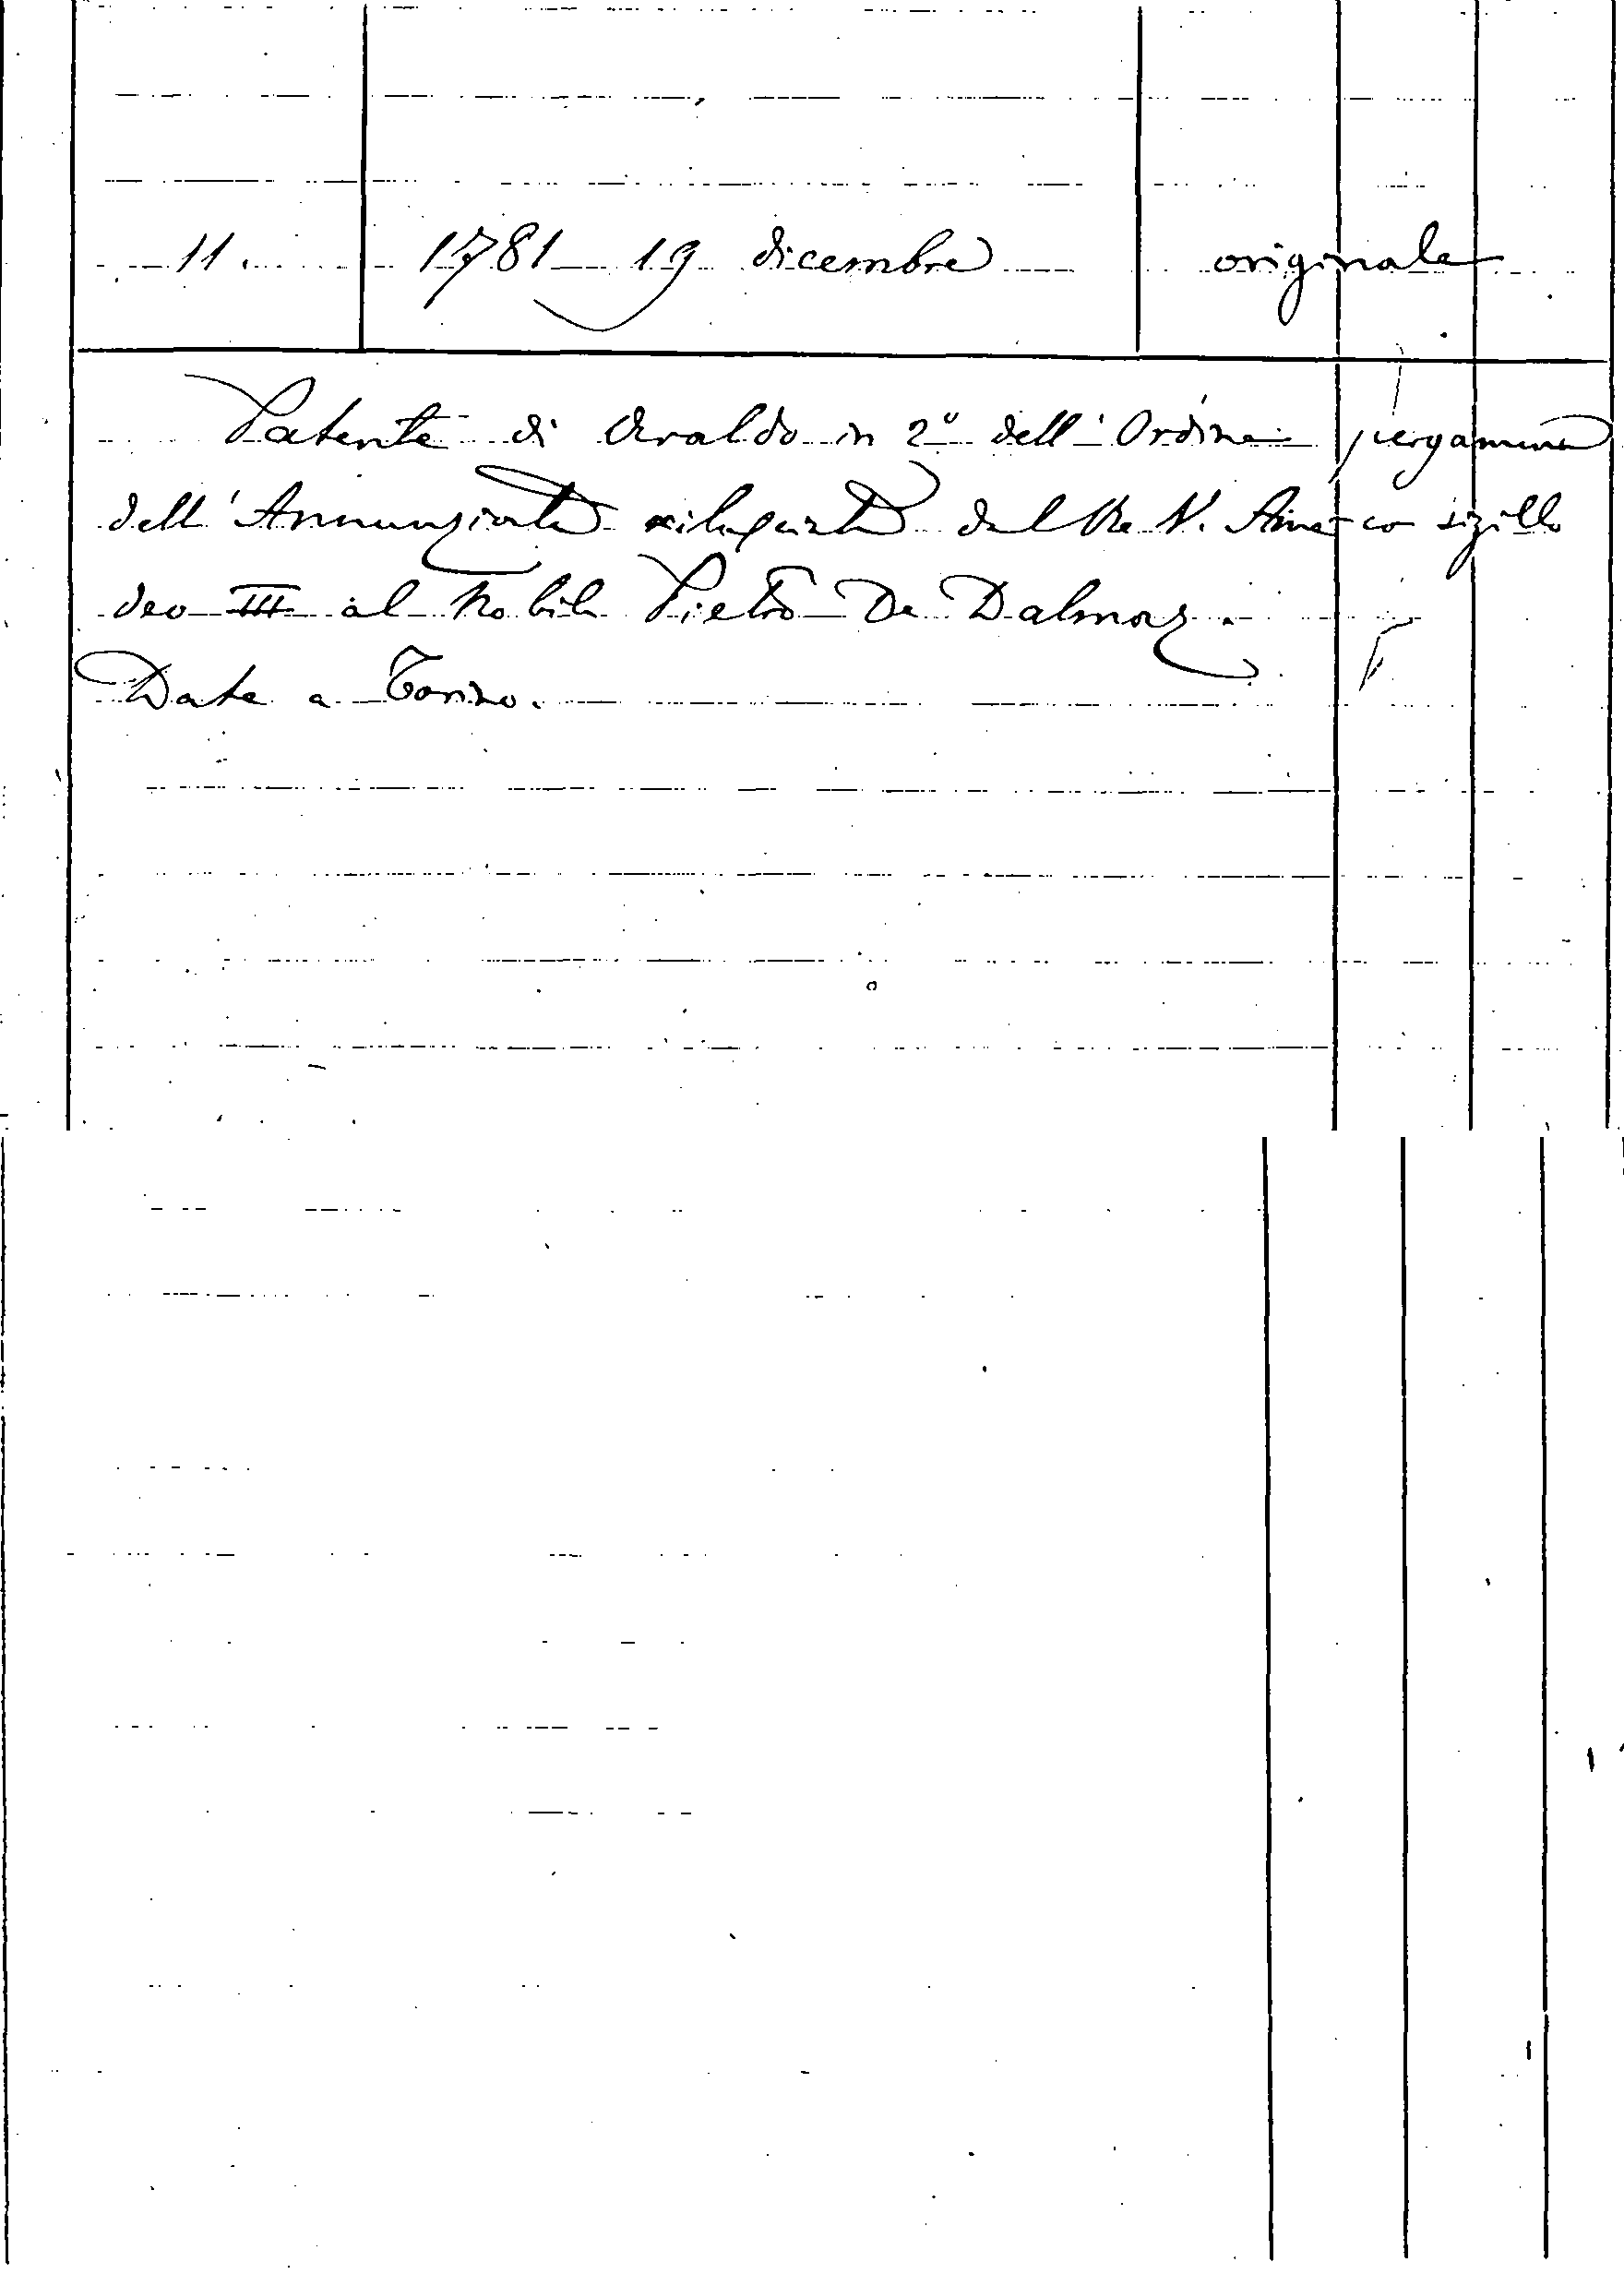 11. 1781 19 dicembre originale
Patente di Araldo in 2º dell'Ordine pergamena
dell'Annunziata rilasciata dal Re V. Ame- co sigillo
deo III al Nobile Pietro De Dalmaz.
Data a Torino.